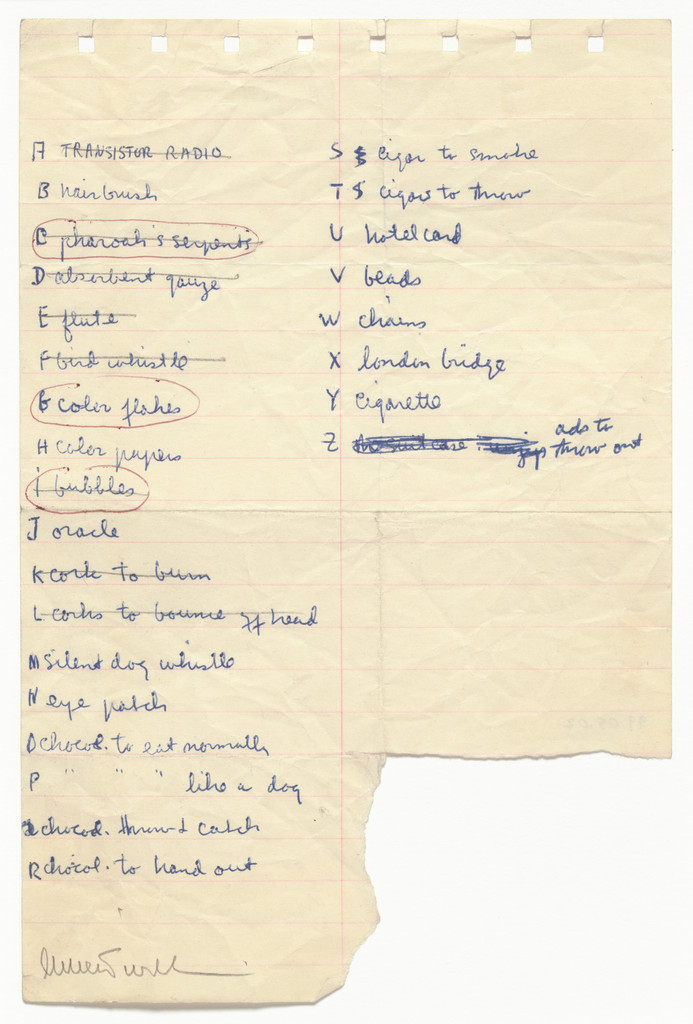 A TRANSISTOR RADIO
B hairbrush
C pharoah's serpents
D absorbent gauze
E flute
F bird whistle
G color flakes
H color papers
i bubbles
J oracle
K cork to burn
L corks to bounce off head
M silent dog whistle
N eye patch
O chocol. to eat normally
P " " " like a dog
chocol. throw & catch
R chocol. to hand out
S cigar to smoke
T cigars to throw
U hotel card
V beads
W chains
X london bridge
Y cigarette
Z suitcase ads to
throw out